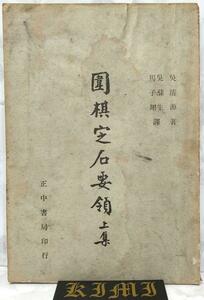 吳清源著
吳蘇生
馬子翊譯
圍棋定石要領上集
正中書局印行
KIMI